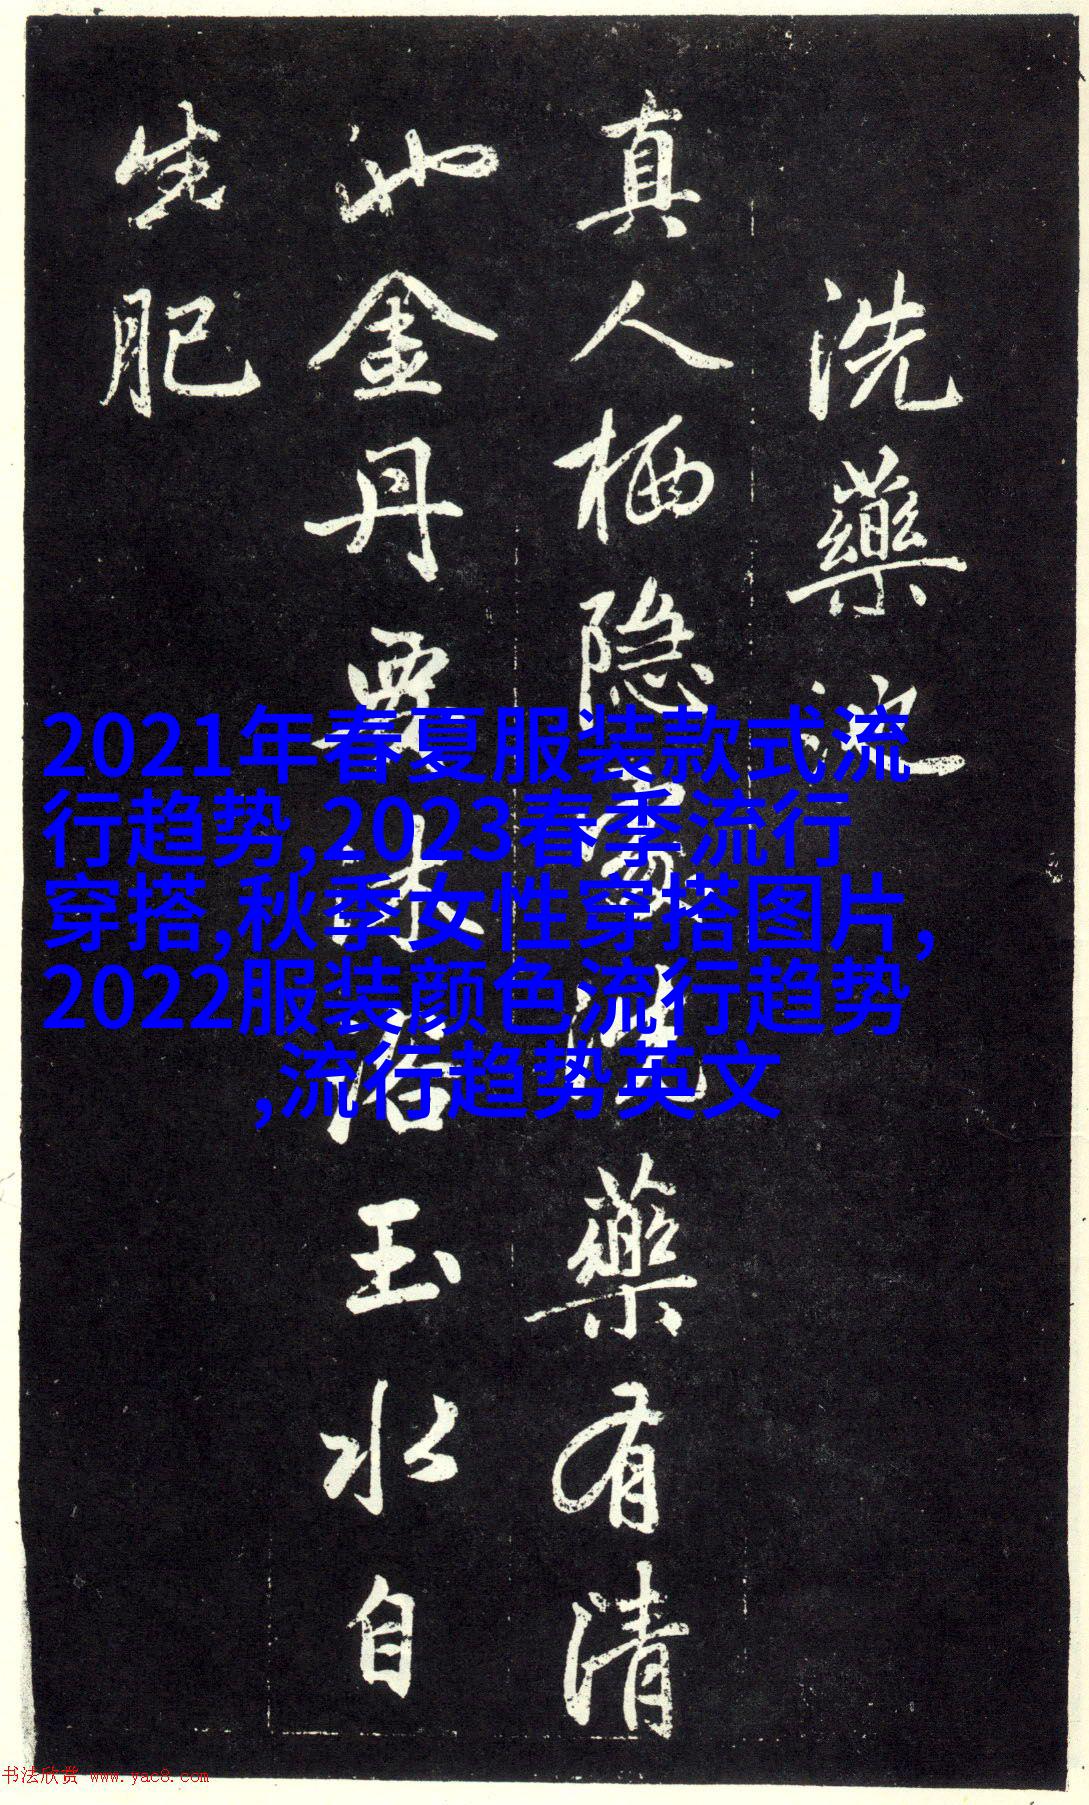 洗藥池
真人栖隐洗藥有清
池金丹要沐浴玉水自
生肥
2021年春夏服装款式流
行趋势,2023春季流行
穿搭,秋季女性穿搭图片,
2022服装颜色流行趋势
,流行趋势英文
书法欣赏 www.yac8.com